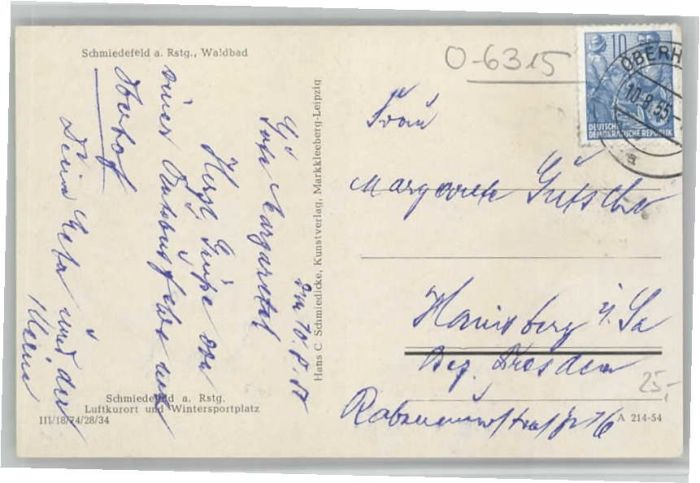 Schmiedefeld a. Rstg., Waldbad
O-6315
10
DEUTSCHE
DEMOKRATISCHE REPUBLIK
OBERH
10.8.55
a
den 10.8.55
Liebe Margarete!
Herzl. Grüße von
einer Autobusfahrt nach
Oberhof
Deine Herta und der
Kleine
Hans C. Schmiedicke, Kunstverlag, Markkleeberg-Leipzig
Frau
Margarete
Hainsberg i. Sa
Bez. Dresden
Rabenauerstraße 16
25,-
Schmiedefeld a. Rstg.
Luftkurort und Wintersportplatz
III/18/74/28/34
A 214-54